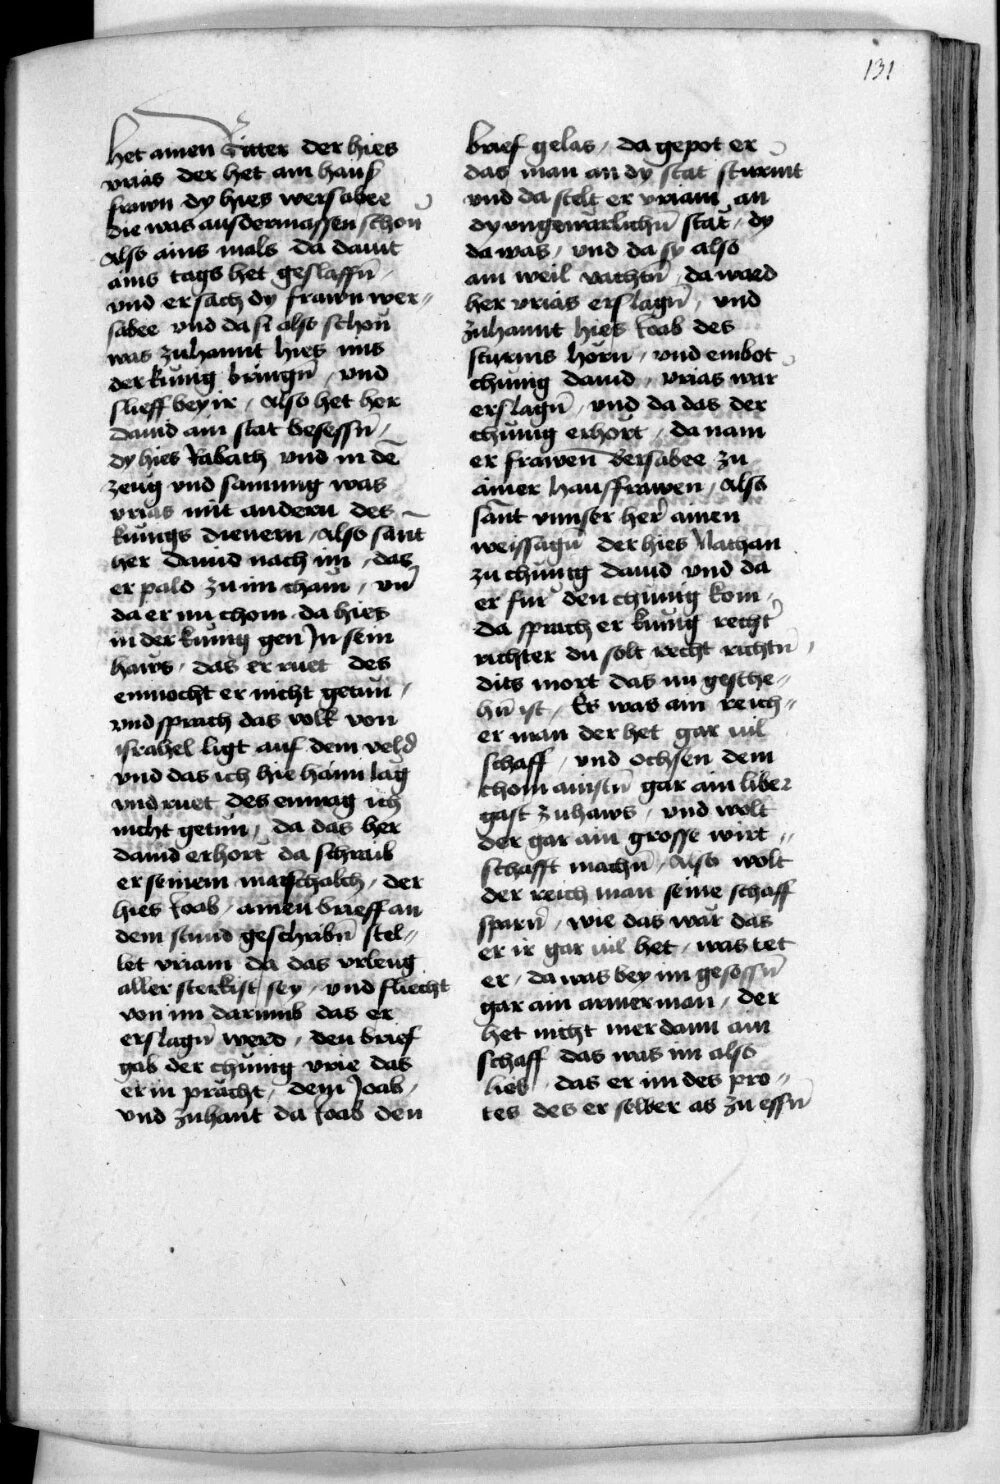 131
het ainen Ritter der hies
vrias der het ain hausz
frawn dy hies wersabee
die was ausdermassen schon
Also ains mals da dauit
ains tags het geslaffn̄ /
vnd er sach dy frawn wer„
sabee vnd da si also schon
was zuhannt hies ims
der kunig bringn̄ / vnd
slieff bey ir / Also het her
dauid ain stat besessn̄ /
dy hies Rabath vnd in dē
zeug vnd samung was
vrias mit andern des
kunigs dienern / Also sānt
her dauid nach im / das
er pald zu im cham / vn̄
da er nu chom da hies
in der kunig gen In sein
haws / das er ruet des
enmocht er nicht getun /
vnd sprach das volk von
israhel ligt auf dem veld
vnd das ich hie haim lag
vnd ruet des enmag ich
nicht getun / da das her
dauid erhort da schraib
er seinem marschalch / der
hies Joab / ainen brieff an
dem stund geschribn̄ stel„
let vriam da das vrleug
aller sterkist sey / vnd fliecht
von im darumb das er
erslagn̄ werd / den brief
gab der chunig vrie das
er in pracht / dem Joab /
vnd zuhant da Joab den
brief gelas / da gepot er
das man an dy stat sturmt
vnd da stelt er vriam an
dy vngewarlichn̄ stat / dy
da was / vnd da sy also
ain weil vachtn̄ / da ward
her vrias erslagn̄ / vnd
zuhannt hies Joab des
sturms horn̄ / vnd embot
chunig dauid / vrias war
erslagn̄ / vnd da das der
chunig erhort / da nam
er frawen bersabee zu
ainer hausfrawen / Also
sānt vnnser her ainen
weissagn̄ der hies Nathan
zu chunig dauid vnd da
er fur den chunig kom /
da sprach er kunig rechtʼ
richter du solt recht richtn̄ /
dits mort das nu gesche„
hn̄ ist / Es was ain reich„
er man der het gar vil
schaff / vnd ochsen dem
chom ainstn̄ gar ain liber
gast zuhaws / vnd wolt
der gar ain grosse wirt „
schafft machn̄ / Also wolt
der reich man seine schaff
sparn̄ / wie das war das
er ir gar vil het / was tet
er / da was bey im gesessn̄
gar ain armer man / der
het nicht mer dann ain
schaff das was im also
lieb / das er im des pro„
tes des er selber as zu essn̄